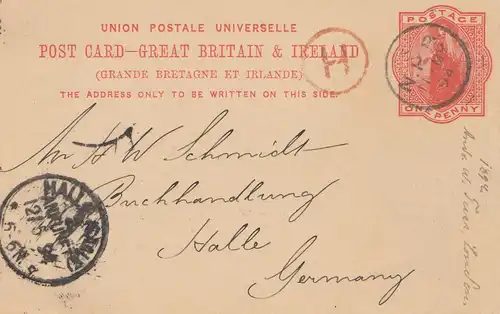 UNION POSTALE UNIVERSELLE
POST CARD—GREAT BRITAIN & IRELAND
(GRANDE BRETAGNE ET IRLANDE)
THE ADDRESS ONLY TO BE WRITTEN ON THIS SIDE.
H
POSTAGE
ONE PENNY
N.P.
94
An H W Schmidt
Buchhandlung
Halle
Germany
HALLE
5-6N.
1894
London